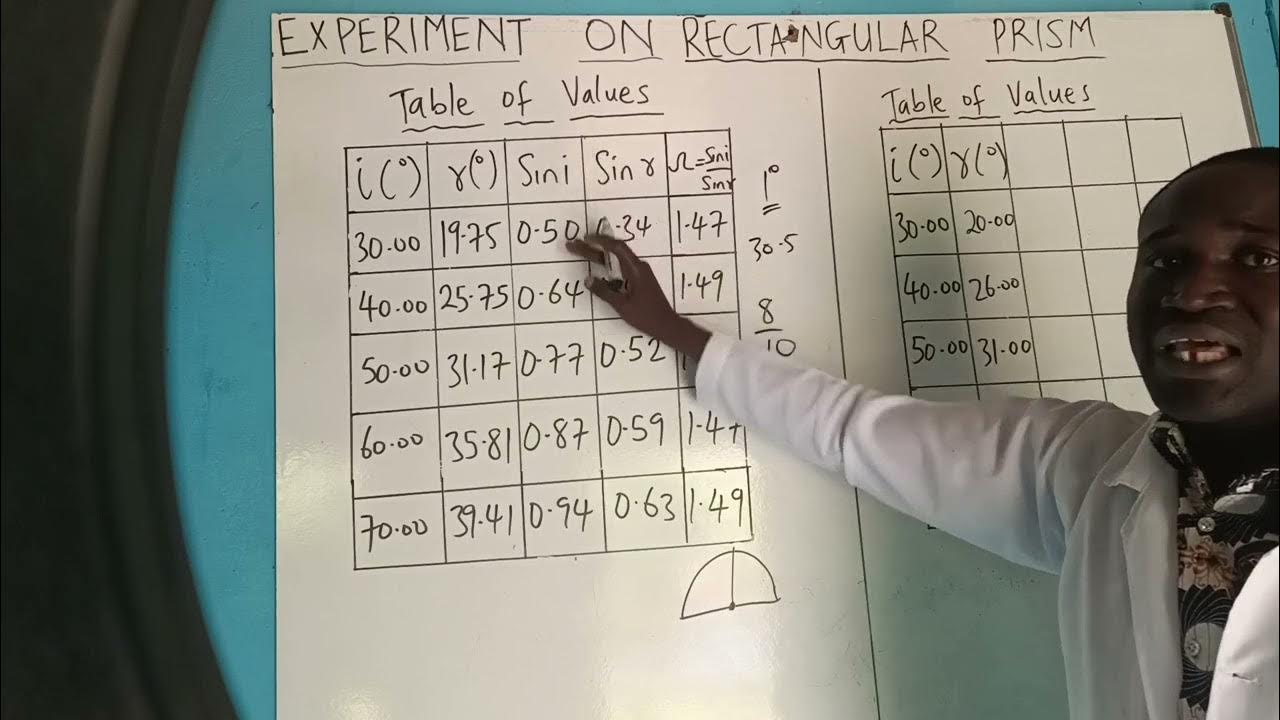 EXPERIMENT ON RECTANGULAR PRISM
Table of Values
i(°) r(°) Sin i Sin r n=Sin i/Sin r
30.00 19.75 0.50 0.34 1.47
40.00 25.75 0.64 1.49
50.00 31.17 0.77 0.52
60.00 35.81 0.87 0.59 1.47
70.00 39.41 0.94 0.63 1.49
1°
30.5
8
10
Table of Values
i(°) r(°)
30.00 20.00
40.00 26.00
50.00 31.00